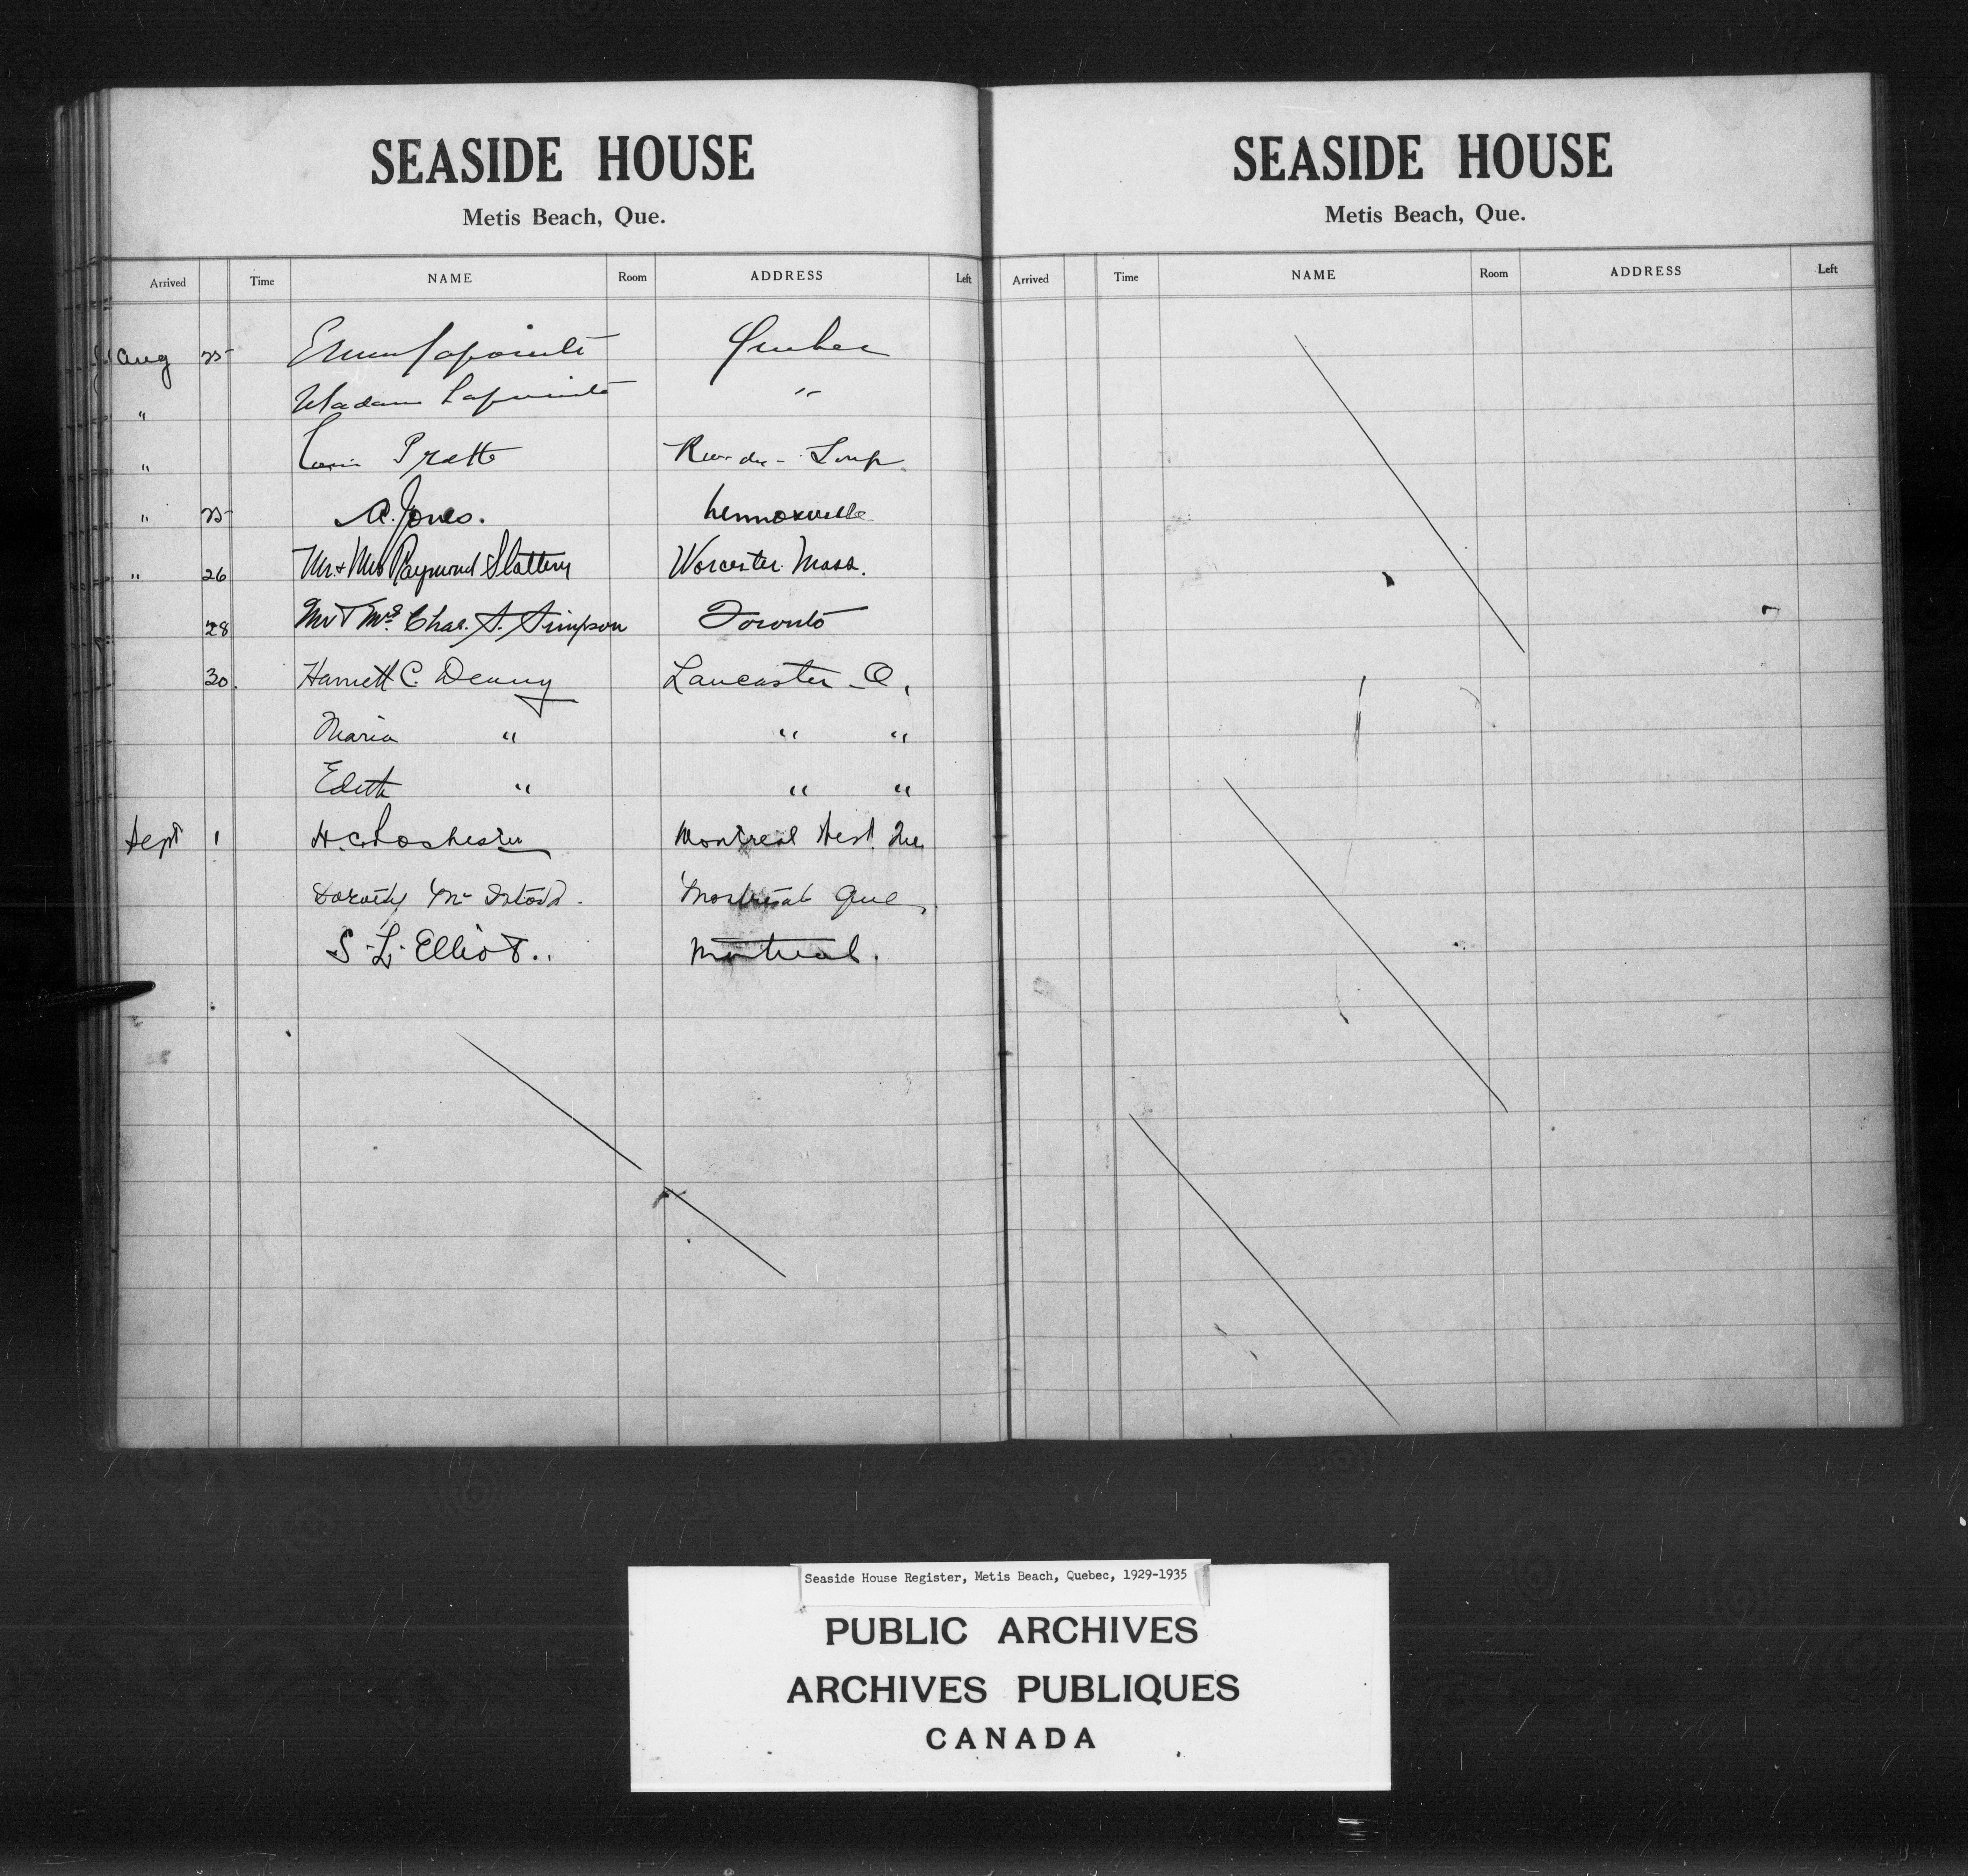 SEASIDE HOUSE
Metis Beach, Que.
Arrived Time NAME Room ADDRESS Left
Aug 25 Lapointe Quebec
" Madame Lapointe "
" Pratte Riv. du - Loup
" 25 A. Jones. Lennoxville
" 26 Mr. + Mrs Raymond Slattery Worcester Mass.
28 Mr + Mrs. Chas. S. Simpson Toronto
30. Harriett C. Denny Lancaster O.
Maria " " "
Edith " " "
Sept 1 H. C. Montreal West Que
Dorothy Montreal Que
S. L. Elliot.. Montreal.
SEASIDE HOUSE
Metis Beach, Que.
Arrived Time NAME Room ADDRESS Left
Seaside House Register, Metis Beach, Quebec, 1929-1935
PUBLIC ARCHIVES
ARCHIVES PUBLIQUES
CANADA